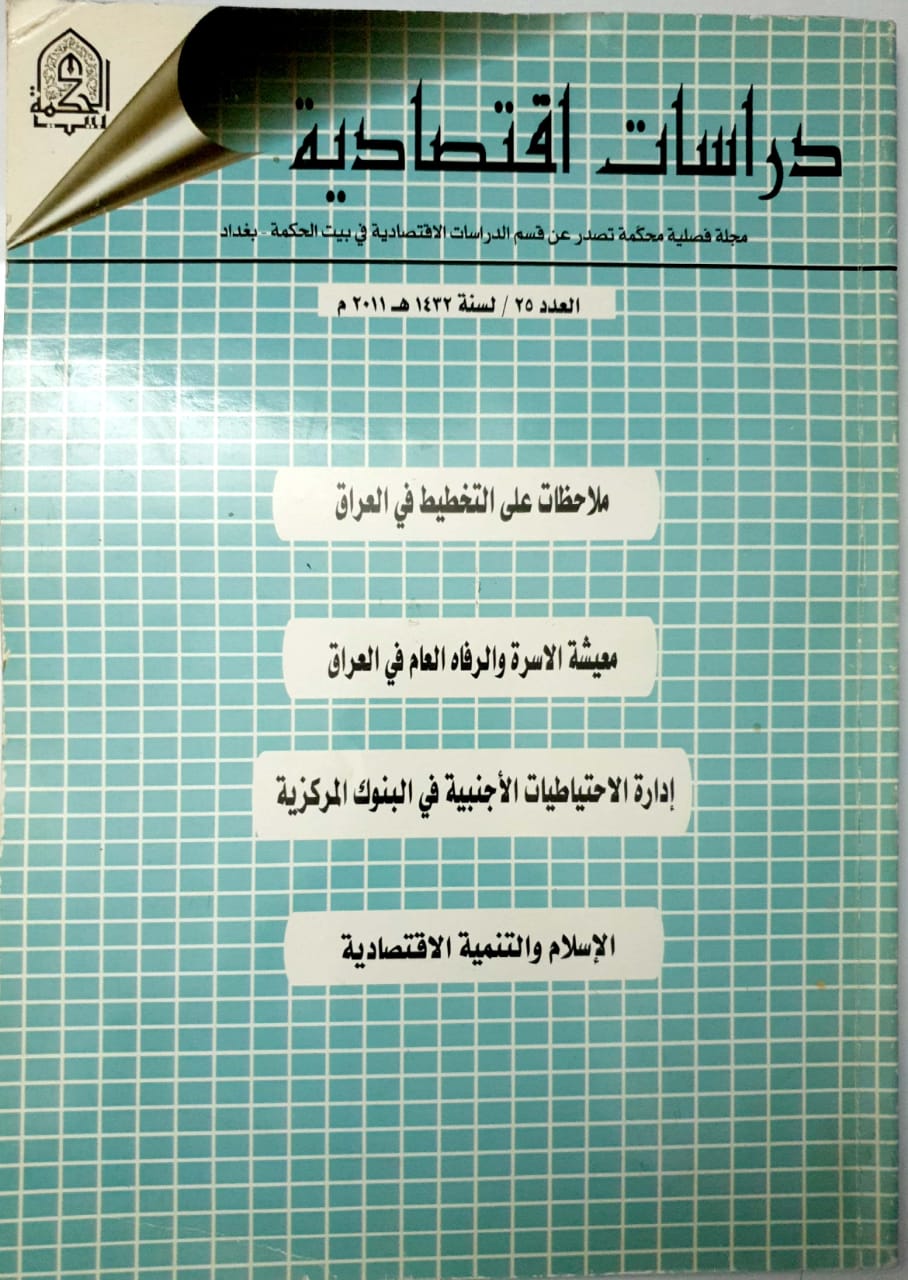 بيت الحكمة
دراسات اقتصادية
مجلة فصلية محكّمة تصدر عن قسم الدراسات الاقتصادية في بيت الحكمة - بغداد
العدد ٢٥ / لسنة ١٤٣٢ هـ ٢٠١١ م
ملاحظات على التخطيط في العراق
معيشة الاسرة والرفاه العام في العراق
إدارة الاحتياطيات الأجنبية في البنوك المركزية
الإسلام والتنمية الاقتصادية